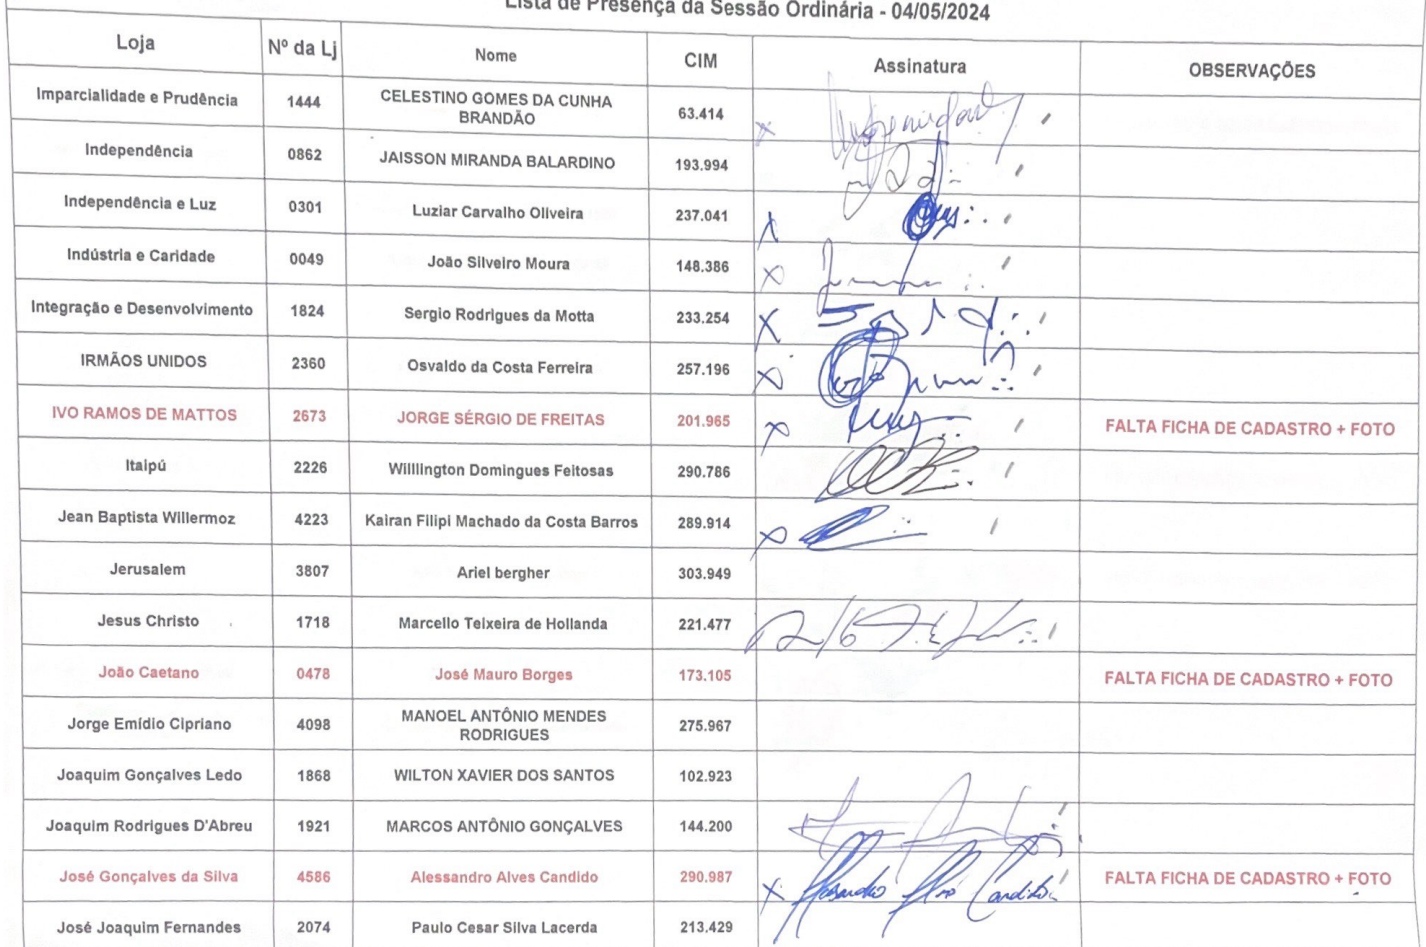 Lista de Presença da Sessão Ordinária - 04/05/2024
Loja Nº da Lj Nome CIM Assinatura OBSERVAÇÕES
Imparcialidade e Prudência 1444 CELESTINO GOMES DA CUNHA BRANDÃO 63.414
Independência 0862 JAISSON MIRANDA BALARDINO 193.994
Independência e Luz 0301 Luziar Carvalho Oliveira 237.041
Indústria e Caridade 0049 João Silveiro Moura 148.386
Integração e Desenvolvimento 1824 Sergio Rodrigues da Motta 233.254
IRMÃOS UNIDOS 2360 Osvaldo da Costa Ferreira 257.196
IVO RAMOS DE MATTOS 2673 JORGE SÉRGIO DE FREITAS 201.965 FALTA FICHA DE CADASTRO + FOTO
Itaipú 2226 Willlington Domingues Feitosas 290.786
Jean Baptista Willermoz 4223 Kairan Filipi Machado da Costa Barros 289.914
Jerusalem 3807 Ariel bergher 303.949
Jesus Christo 1718 Marcello Teixeira de Hollanda 221.477
João Caetano 0478 José Mauro Borges 173.105 FALTA FICHA DE CADASTRO + FOTO
Jorge Emídio Cipriano 4098 MANOEL ANTÔNIO MENDES RODRIGUES 275.967
Joaquim Gonçalves Ledo 1868 WILTON XAVIER DOS SANTOS 102.923
Joaquim Rodrigues D'Abreu 1921 MARCOS ANTÔNIO GONÇALVES 144.200
José Gonçalves da Silva 4586 Alessandro Alves Candido 290.987 Alessandro Alves Candido FALTA FICHA DE CADASTRO + FOTO
José Joaquim Fernandes 2074 Paulo Cesar Silva Lacerda 213.429